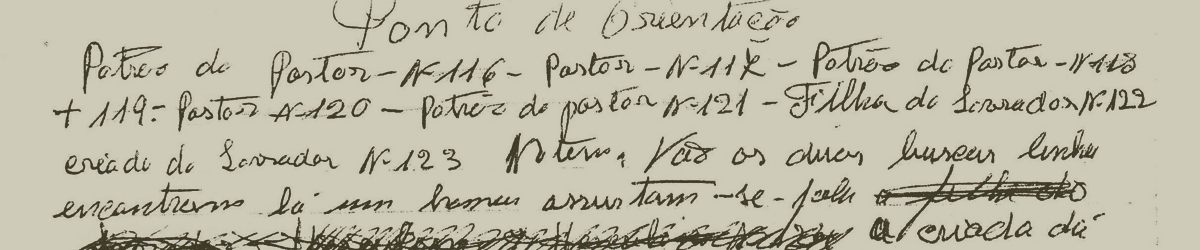 Ponto de Orientação
Patrão do Pastor - Nº 116 - Pastor - Nº 117 - Patrão do Pastor - Nº 118
+ 119 - Pastor Nº 120 - Patrão do pastor Nº 121 - Filha do Lavrador Nº 122
criada do Lavrador Nº 123 Vão as duas buscar lenha
encontram lá um homem assustam-se - fala
a criada dá